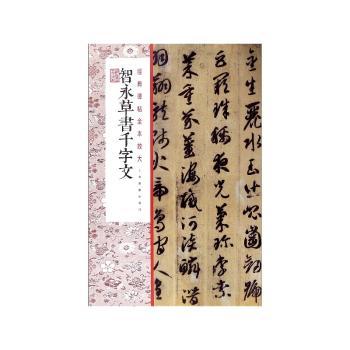 金生麗水玉出崐岡劍號
巨闕珠稱夜光菓珍李柰
菜重芥薑海醎河淡鱗潛
羽翔龍師火帝鳥官人皇
經典碑帖全本放大
智永草書千字文